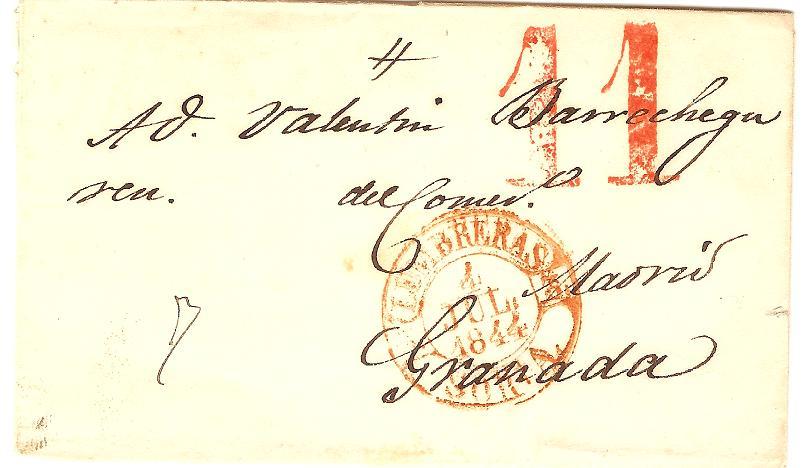 11
A D. Valentin Barrechegu
ren. del Comer.º
Madrid
Granada
LUMBRERAS
4
JUL.
1844
SORIA